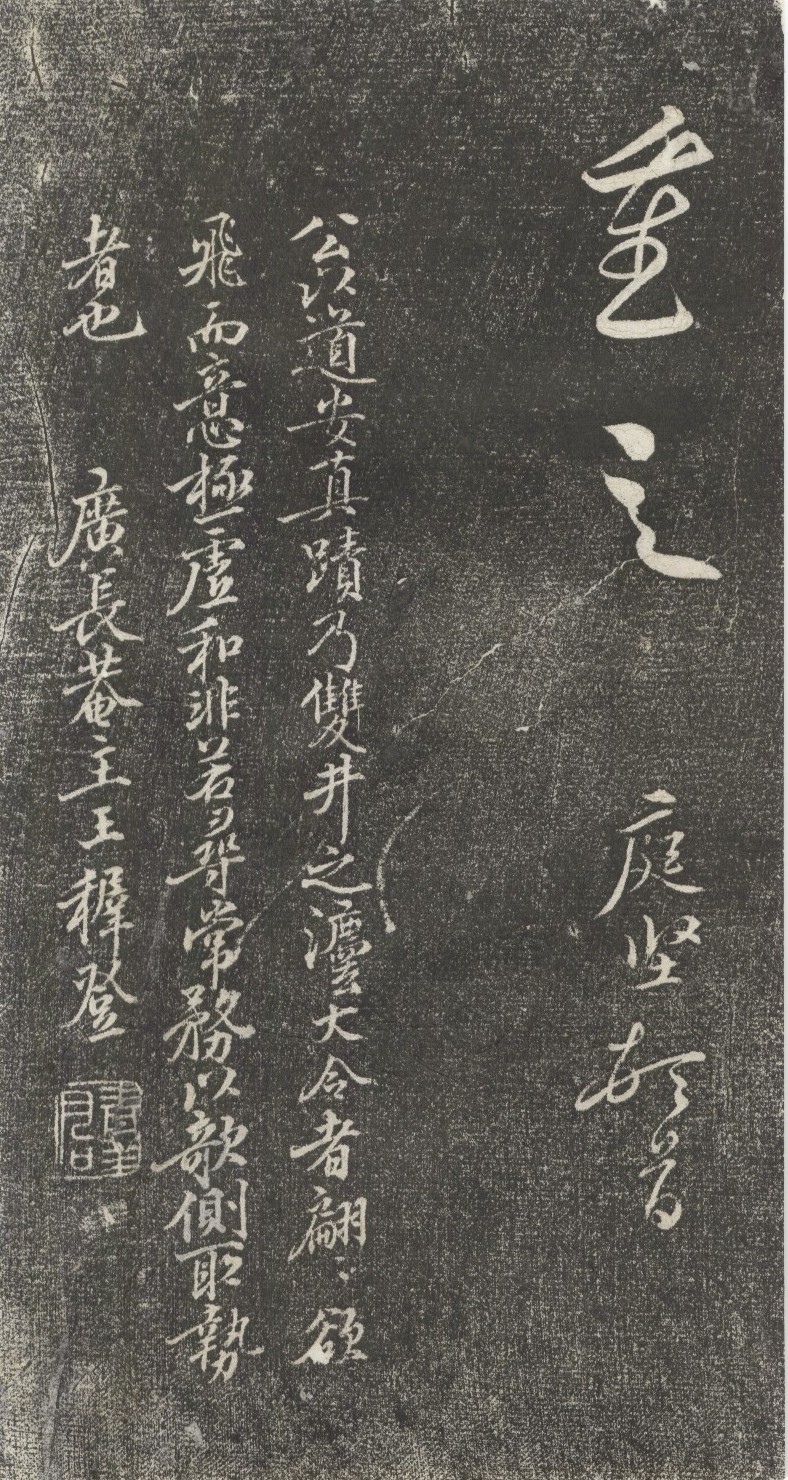 重之 庭堅頓首
公以道安真蹟乃雙井之灋大令者翩〻欲
飛而意極虛和非若尋常務以欹側取勢
者也 廣長菴主王穉登